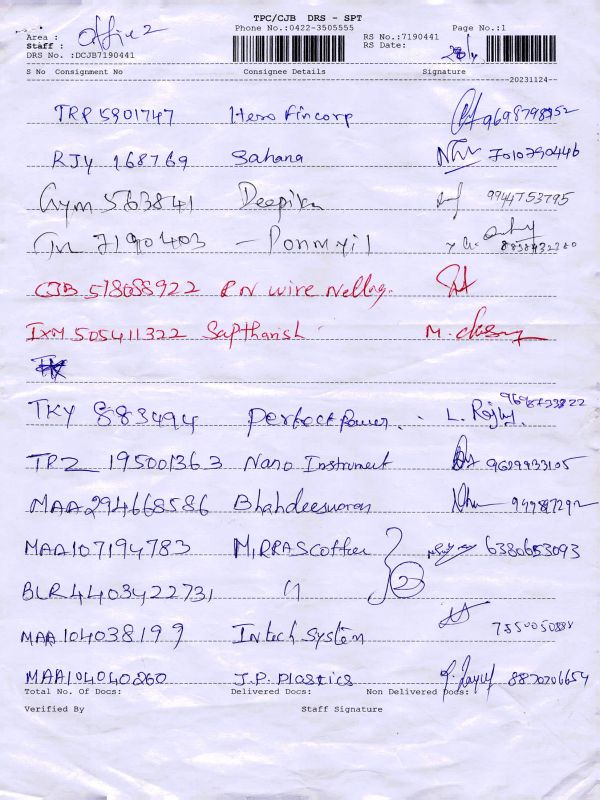 TPC/CJB DRS - SPT
Area : Office Phone No.:0422-3505555 RS No.:7190441 Page No.:1
Staff : RS Date:
DRS No. :DCJB7190441
S No Consignment No Consignee Details Signature
20231124
TRP 5901747 Hero Fincorp 9698798952
RJY 168769 Sahana 7010790446
Gym 563841 Deepika 9944753795
7190403 - Ponmyil
CJB 518688922 P N wire Netting.
IXM 505411322 Saptharish
TKY 883494 Perfect Power. L. Rajby.
TRZ 195001363 Nano Instrument 9629933105
MAA294668586 Bhahdeeswaran
MAA107194783 MIRRASCoffee 6380653093
BLR4403422731 " 2
MAA104038199 Intech System
MAA104040260 J.P. Plastics 8870206654
Total No. Of Docs: Delivered Docs: Non Delivered Docs:
Verified By Staff Signature